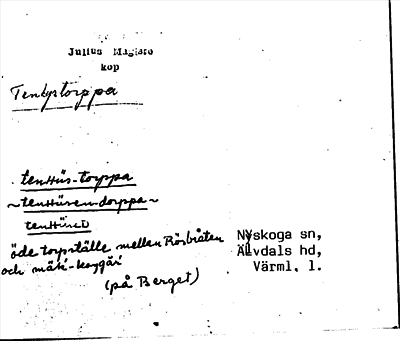 Julius Mägiste
kop
Tenhystorppa
tenHüs-torppa
~tenHüsen-dorppa~
tenHüsei
öde torpställe mellan Rösbråten
och mäki-
(på Berget)
Nyskoga sn,
Älvdals hd,
Värml. l.